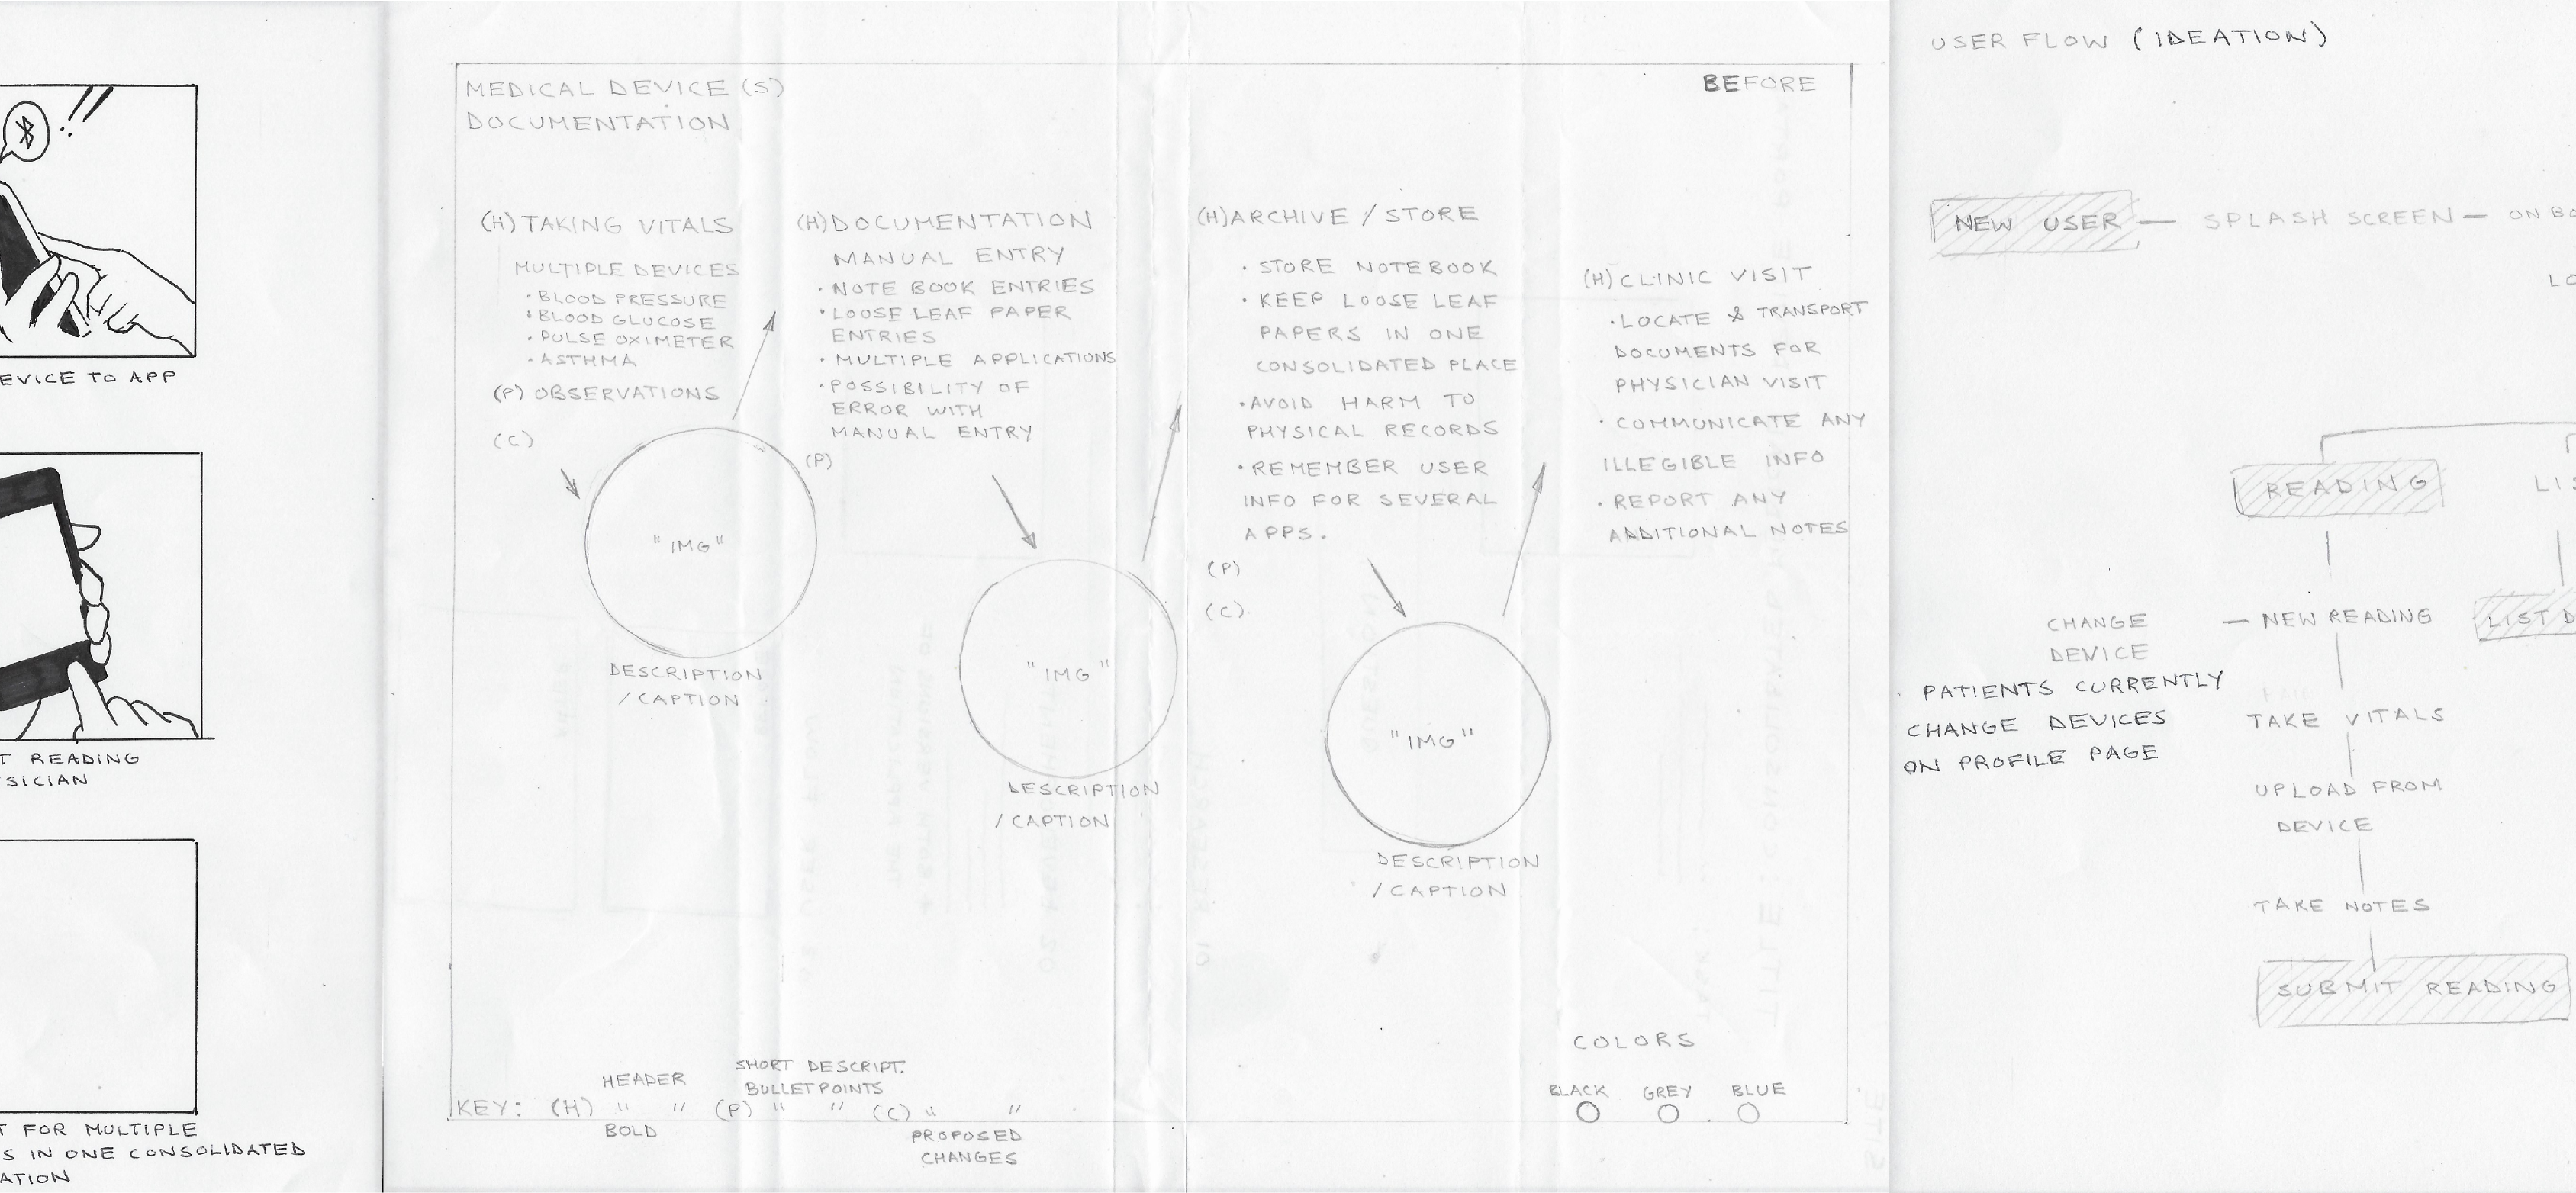 EVICE TO APP
T READING
SICIAN
T FOR MULTIPLE
S IN ONE CONSOLIDATED
ATION
MEDICAL DEVICE (S)
DOCUMENTATION
BEFORE
(H) TAKING VITALS
MULTIPLE DEVICES
· BLOOD PRESSURE
· BLOOD GLUCOSE
· PULSE OXIMETER
· ASTHMA
(P) OBSERVATIONS
(C)
"IMG"
DESCRIPTION
/ CAPTION
(H) DOCUMENTATION
MANUAL ENTRY
· NOTE BOOK ENTRIES
· LOOSE LEAF PAPER
ENTRIES
· MULTIPLE APPLICATIONS
· POSSIBILITY OF
ERROR WITH
MANUAL ENTRY
(P)
"IMG"
DESCRIPTION
/ CAPTION
(H) ARCHIVE / STORE
· STORE NOTEBOOK
· KEEP LOOSE LEAF
PAPERS IN ONE
CONSOLIDATED PLACE
· AVOID HARM TO
PHYSICAL RECORDS
· REMEMBER USER
INFO FOR SEVERAL
APPS.
(P)
(C)
"IMG"
DESCRIPTION
/ CAPTION
(H) CLINIC VISIT
· LOCATE & TRANSPORT
DOCUMENTS FOR
PHYSICIAN VISIT
· COMMUNICATE ANY
ILLEGIBLE INFO
· REPORT ANY
ADDITIONAL NOTES
HEADER
SHORT DESCRIPT.
BULLET POINTS
KEY: (H) " " (P) " " (C) " "
BOLD
PROPOSED
CHANGES
COLORS
BLACK GREY BLUE
USER FLOW (IDEATION)
NEW USER — SPLASH SCREEN — ON BO
LO
READING
LIS
CHANGE
DEVICE
— NEW READING
LIST D
PATIENTS CURRENTLY
CHANGE DEVICES
ON PROFILE PAGE
TAKE VITALS
UPLOAD FROM
DEVICE
TAKE NOTES
SUBMIT READING